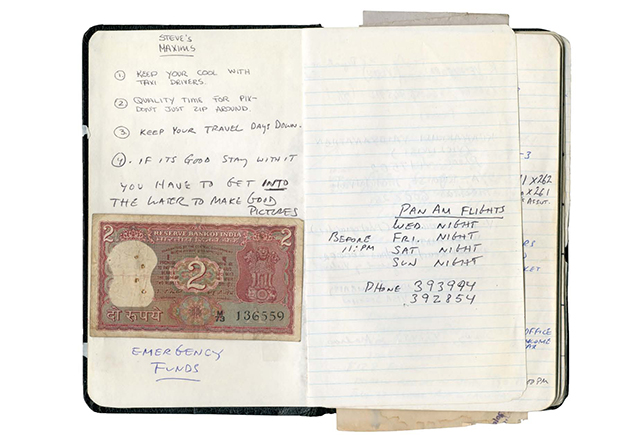 STEVE'S
MAXIMS
① KEEP YOUR COOL WITH
TAXI DRIVERS.
② QUALITY TIME FOR PIX-
DON'T JUST ZIP AROUND.
③ KEEP YOUR TRAVEL DAYS DOWN.
④. IF ITS GOOD STAY WITH IT
YOU HAVE TO GET INTO
THE WATER TO MAKE GOOD
PICTURES
2 RESERVE BANK OF INDIA 2
2
दो रुपये
M/73 136559
EMERGENCY
FUNDS
PAN AM FLIGHTS
WED NIGHT
BEFORE FRI. NIGHT
11:PM SAT NIGHT
SUN NIGHT
PHONE 393994
392854
-3
1 X 262
X 261
OFFICE